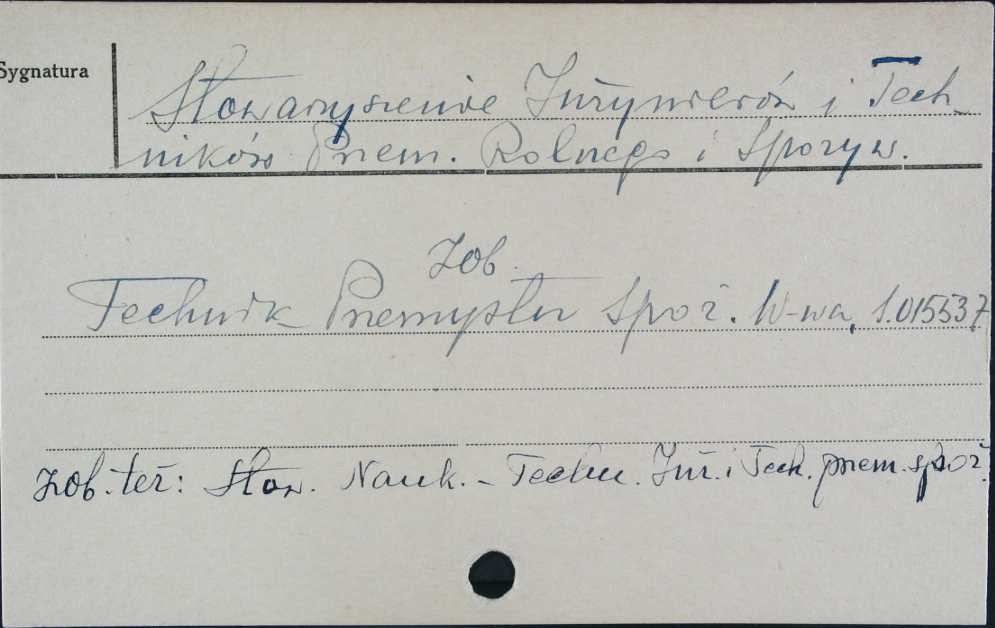 Sygnatura
Stowarzyszenie Inżynierów i Tech-
ników Przem. Rolnego i Spożyw.
Zob.
Technik Przemysłu Spoż. W-wa, 1.015537
Zob. też: Stow. Nauk. - Techn. Inż. i Tech. przem. spoż.